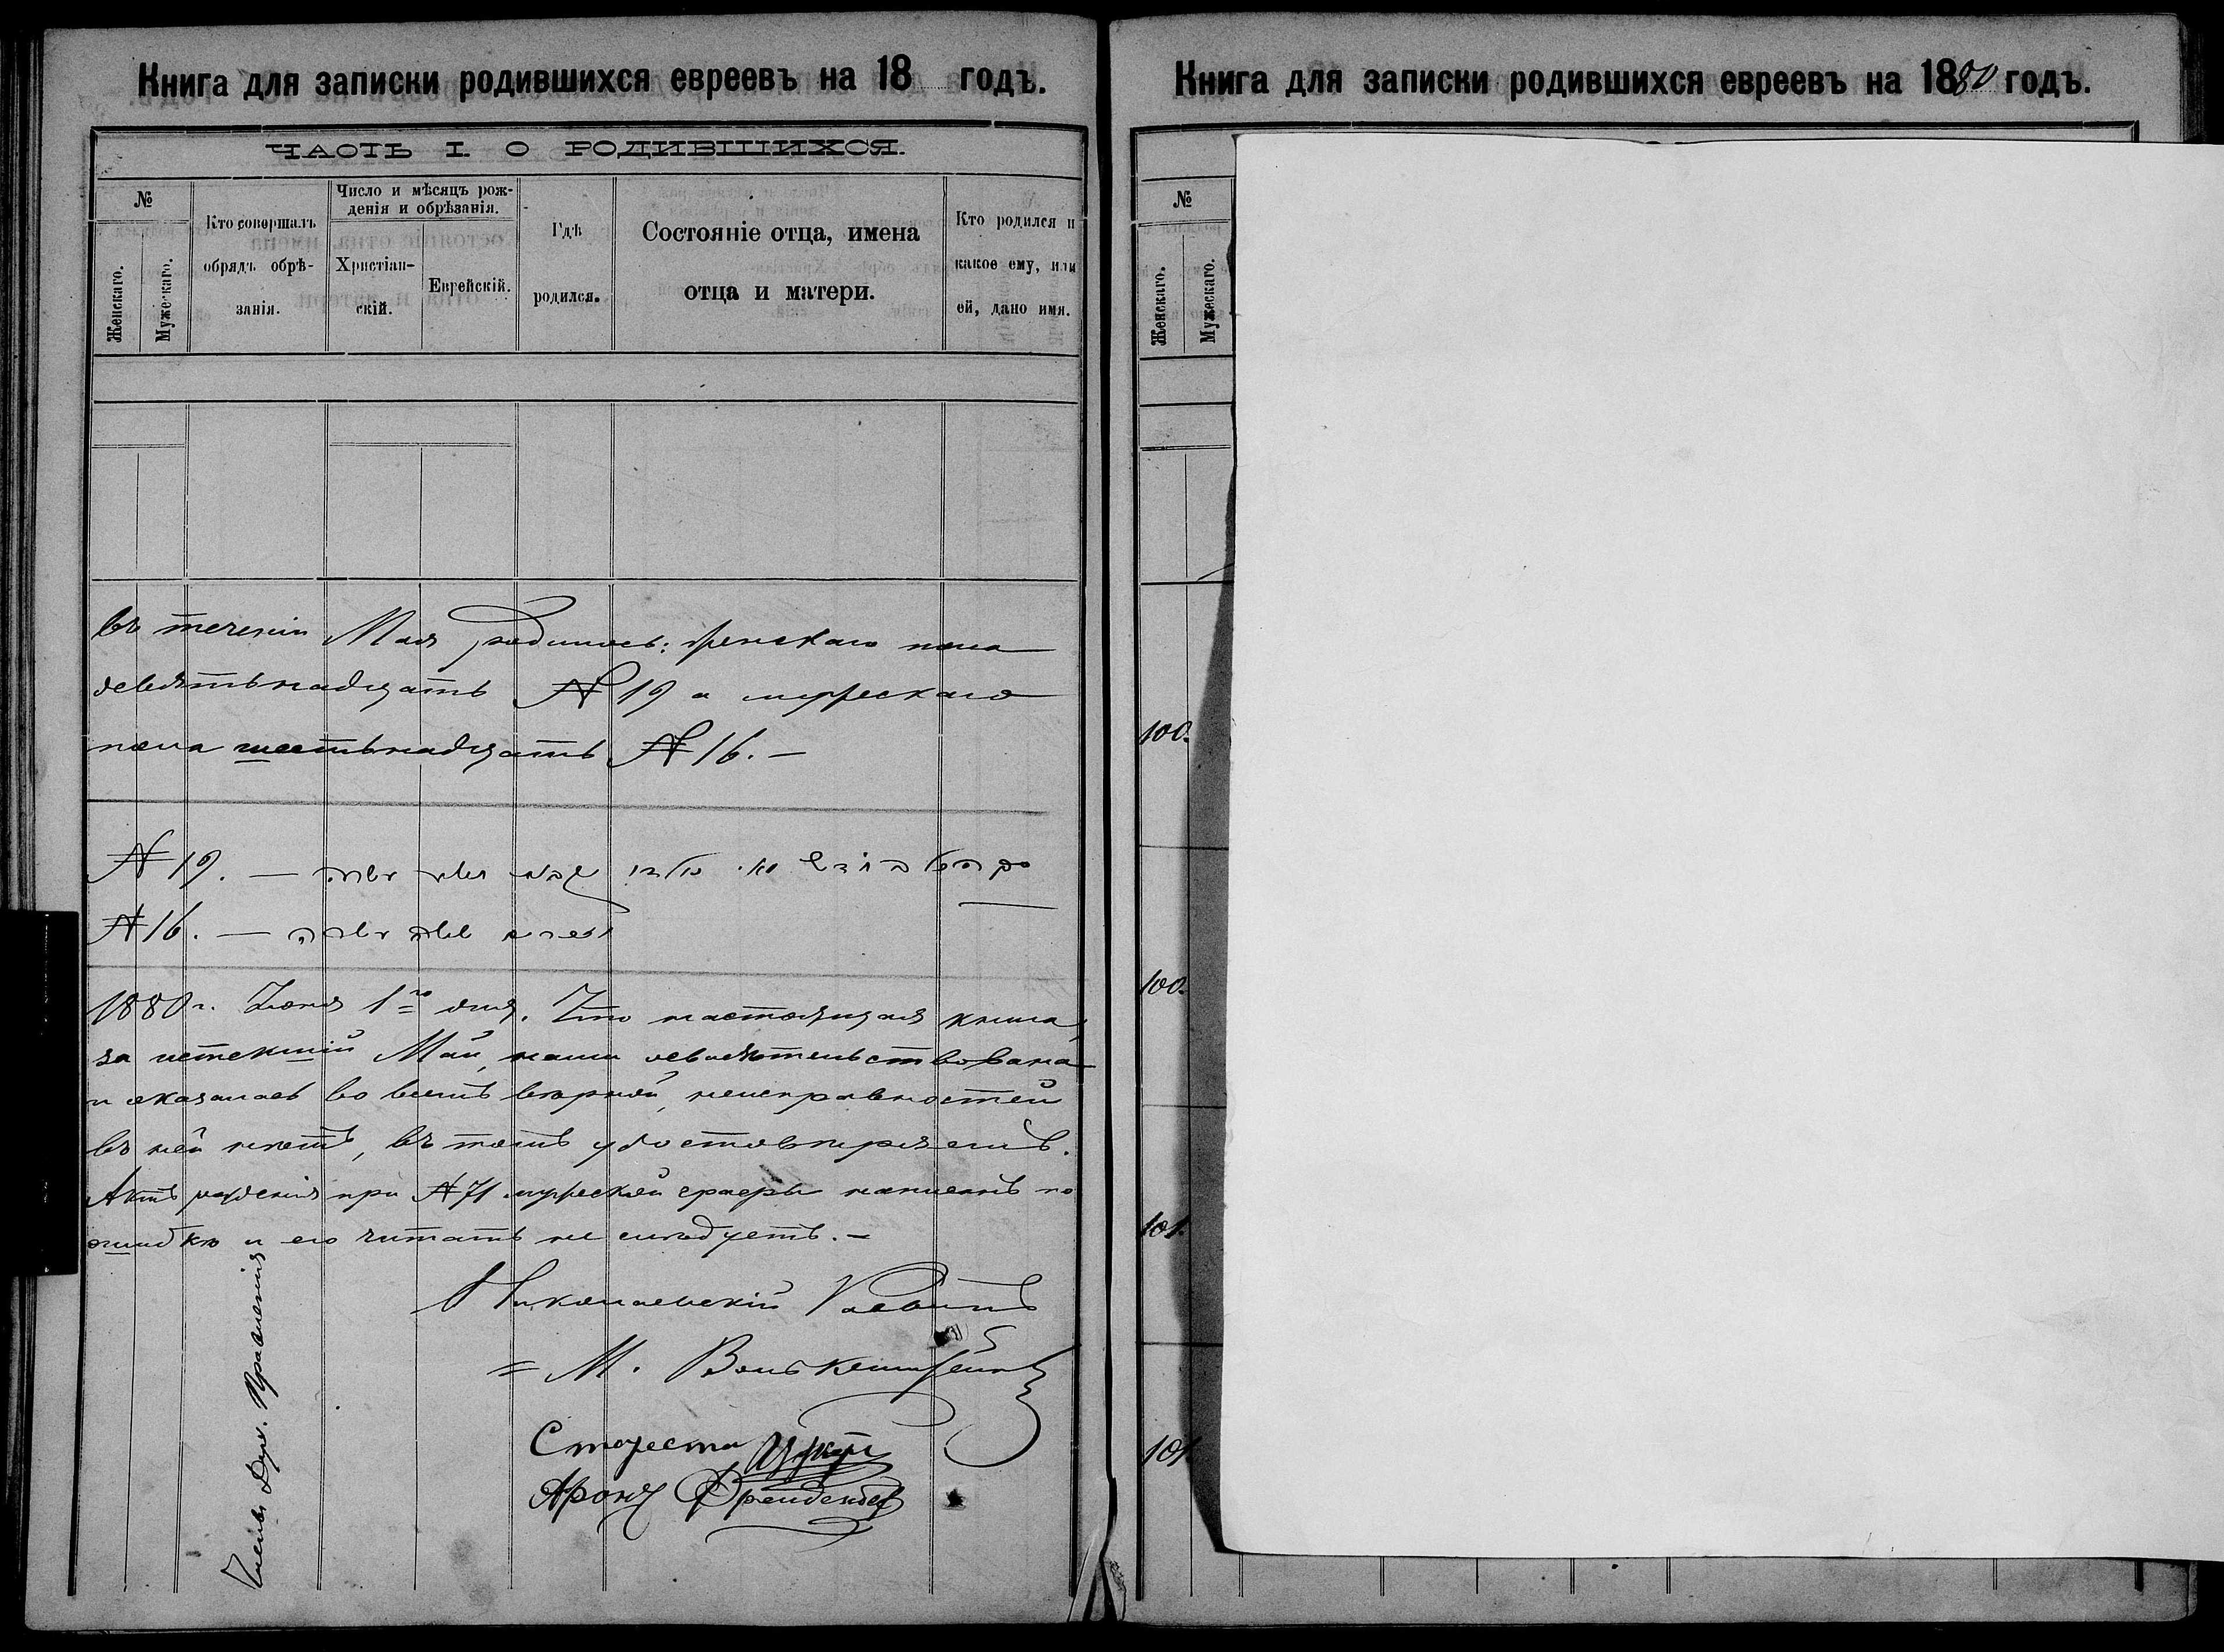 Книга для записки родившихся евреевъ на 18 годъ.
ЧАСТЬ I. О РОДИВШИХСЯ.
№
Женскаго.
Мужескаго.
Кто совершалъ обрядъ обрѣ-занія.
Число и мѣсяцъ рож-
денія и обрѣзанія.
Христіан-
скій.
Еврейскій.
Гдѣ
родился.
Состояніе отца, имена
отца и матери.
Кто родился и
какое ему, или
ей, дано имя.
въ теченіи Мая родилось: женскаго пола
девятьнадцать № 19 а мужескаго
пола шестьнадцать № 16. —
№ 19. —
№ 16. —
1880 г. Іюня 1го дня. Что настоящая книга
за истекшій Май, нами освидѣтельствована
и оказалась во всемъ вѣрной, неисправностей
въ ней нѣтъ, въ томъ удостовѣряемъ.
Актъ рожденія при № 71 мужеской графы написанъ по
ошибкѣ и его читать не слѣдуетъ. —
Николаевскій Раввинъ
М.
Члены Дух. Правленія
Староста
Аронъ
Книга для записки родившихся евреевъ на 1880 годъ.
№
Женскаго.
Мужескаго.
100.
100.
101.
101